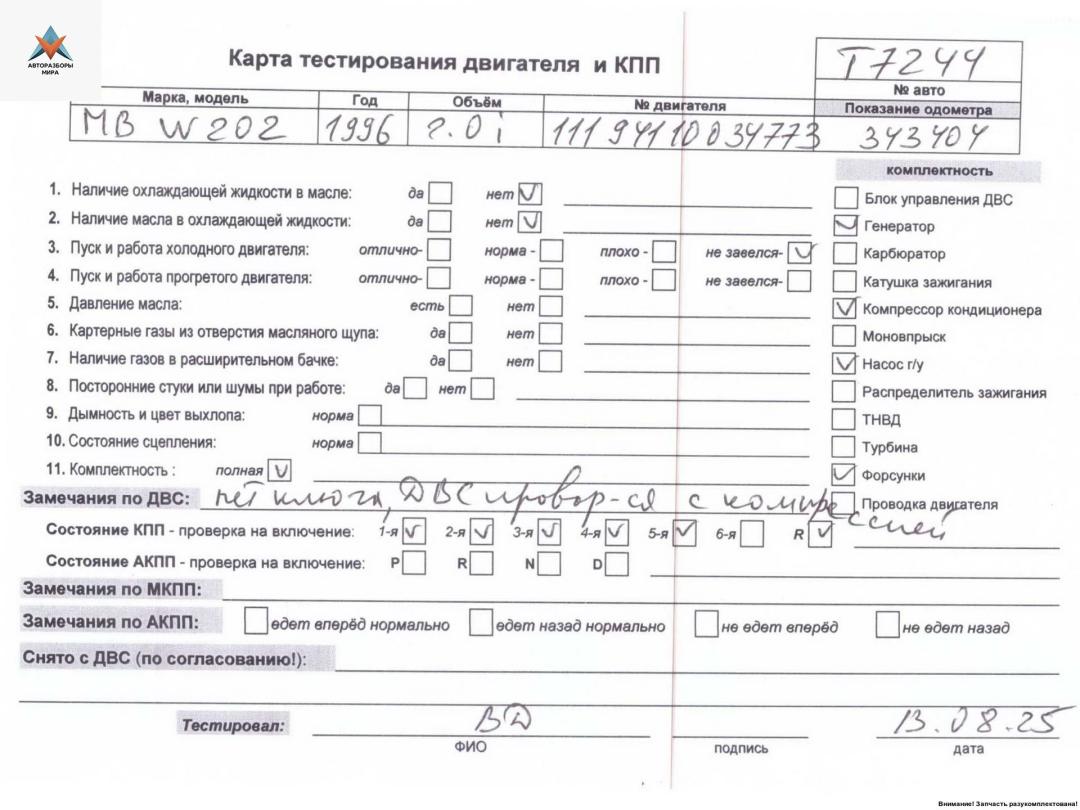 АВТОРАЗБОРЫ
МИРА
Карта тестирования двигателя и КПП
T7244
№ авто
Марка, модель Год Объём № двигателя Показание одометра
MB W202 1996 2.0i 111 941 10 034773 343404
комплектность
1. Наличие охлаждающей жидкости в масле: да нет
Блок управления ДВС
2. Наличие масла в охлаждающей жидкости: да нет
Генератор
3. Пуск и работа холодного двигателя: отлично- норма - плохо - не завелся-
Карбюратор
4. Пуск и работа прогретого двигателя: отлично- норма - плохо - не завелся-
Катушка зажигания
5. Давление масла: есть нет
Компрессор кондиционера
6. Картерные газы из отверстия масляного щупа: да нет
Моновпрыск
7. Наличие газов в расширительном бачке: да нет
Насос г/у
8. Посторонние стуки или шумы при работе: да нет
Распределитель зажигания
9. Дымность и цвет выхлопа: норма
ТНВД
10. Состояние сцепления: норма
Турбина
11. Комплектность : полная
Форсунки
Замечания по ДВС: нет ключа, ДВС провор-ся с компрессией
Проводка двигателя
Состояние КПП - проверка на включение: 1-я 2-я 3-я 4-я 5-я 6-я R
Состояние АКПП - проверка на включение: P R N D
Замечания по МКПП:
Замечания по АКПП: едет вперёд нормально едет назад нормально не едет вперёд не едет назад
Снято с ДВС (по согласованию!):
Тестировал: ВД 13.08.25
ФИО подпись дата
Внимание! Запчасть разукомплектована!